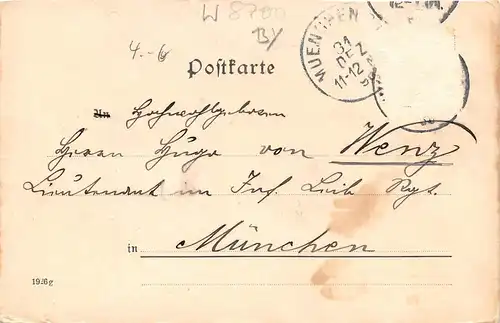 W 8700
BY
4.-6
MUENCHEN
31
DEZ
11-12
Postkarte
An Hochwohlgeboren
Herrn Hugo von Wenz
Lieutenant im Inf. Leib Rgt.
in München
1926g